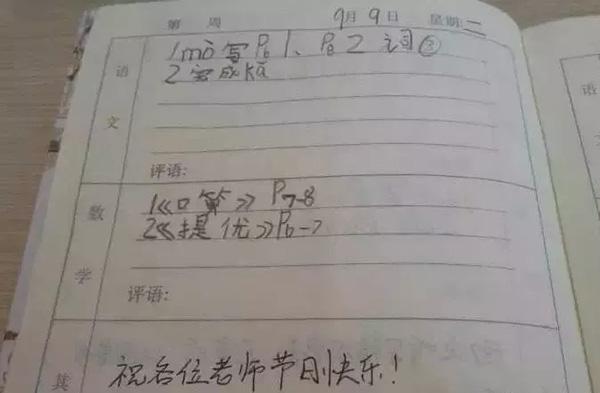 第 周 9月9日 星期:二
语文
1mò写P61、P62词③
2完成kǎ
评语:
数学
1《口算》P7-8
2《提优》P6-7
评语:
其
祝各位老师节日快乐!
语